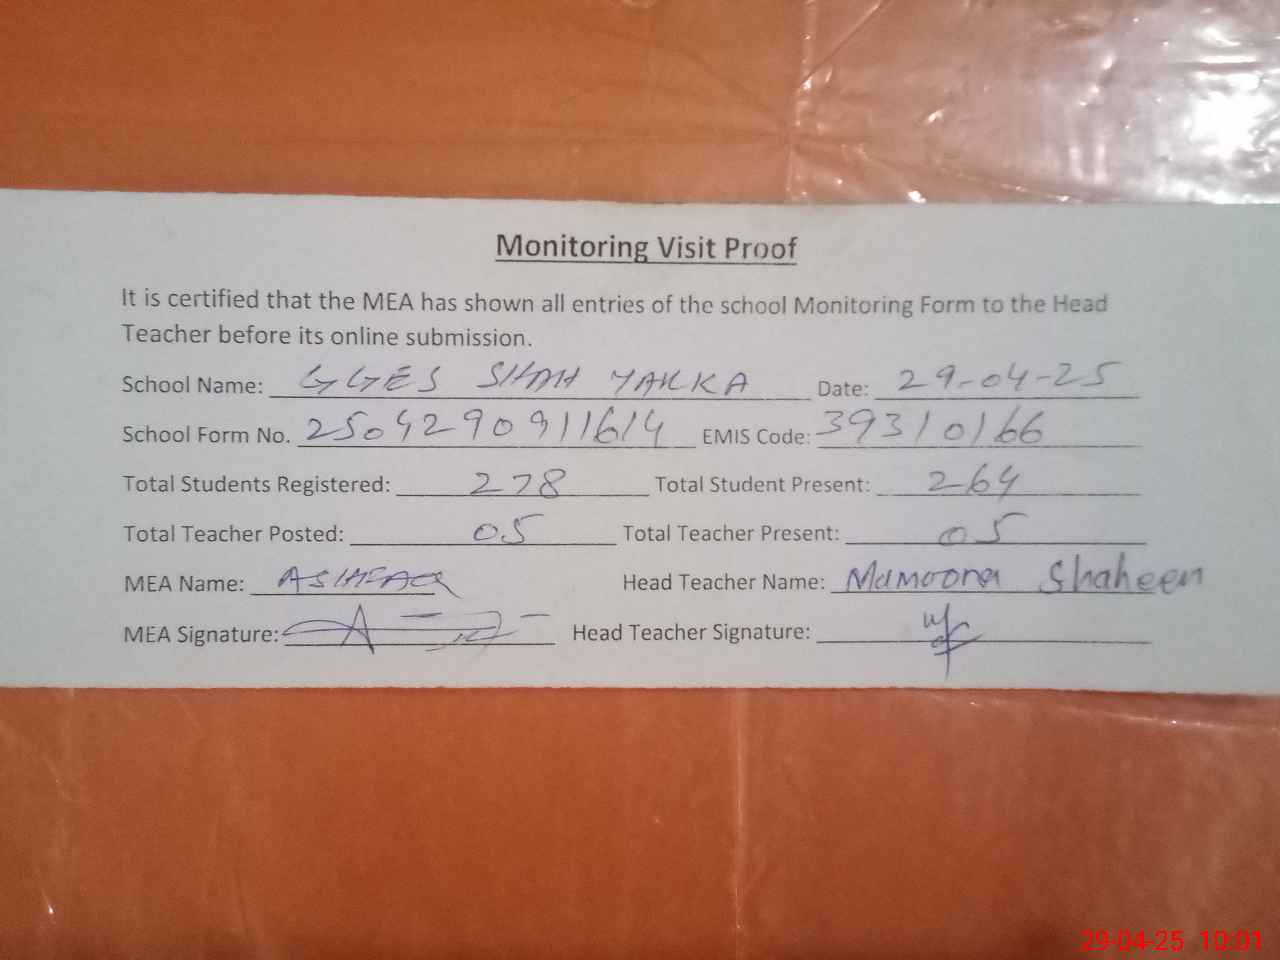 Monitoring Visit Proof
It is certified that the MEA has shown all entries of the school Monitoring Form to the Head
Teacher before its online submission.
School Name: GGES SHAH YAKKA Date: 29-04-25
School Form No. 2504290911614 EMIS Code: 39310166
Total Students Registered: 278 Total Student Present: 264
Total Teacher Posted: 05 Total Teacher Present: 05
MEA Name: ASHFAQ Head Teacher Name: Mamoona Shaheen
MEA Signature: Head Teacher Signature:
29-04-25 10:01